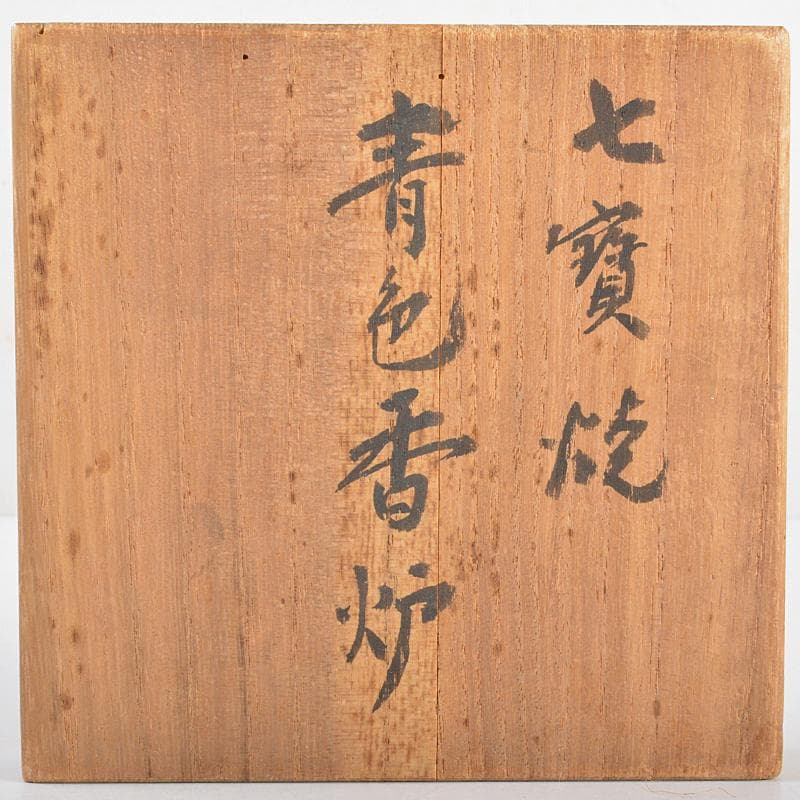 七寶焼
青色香炉